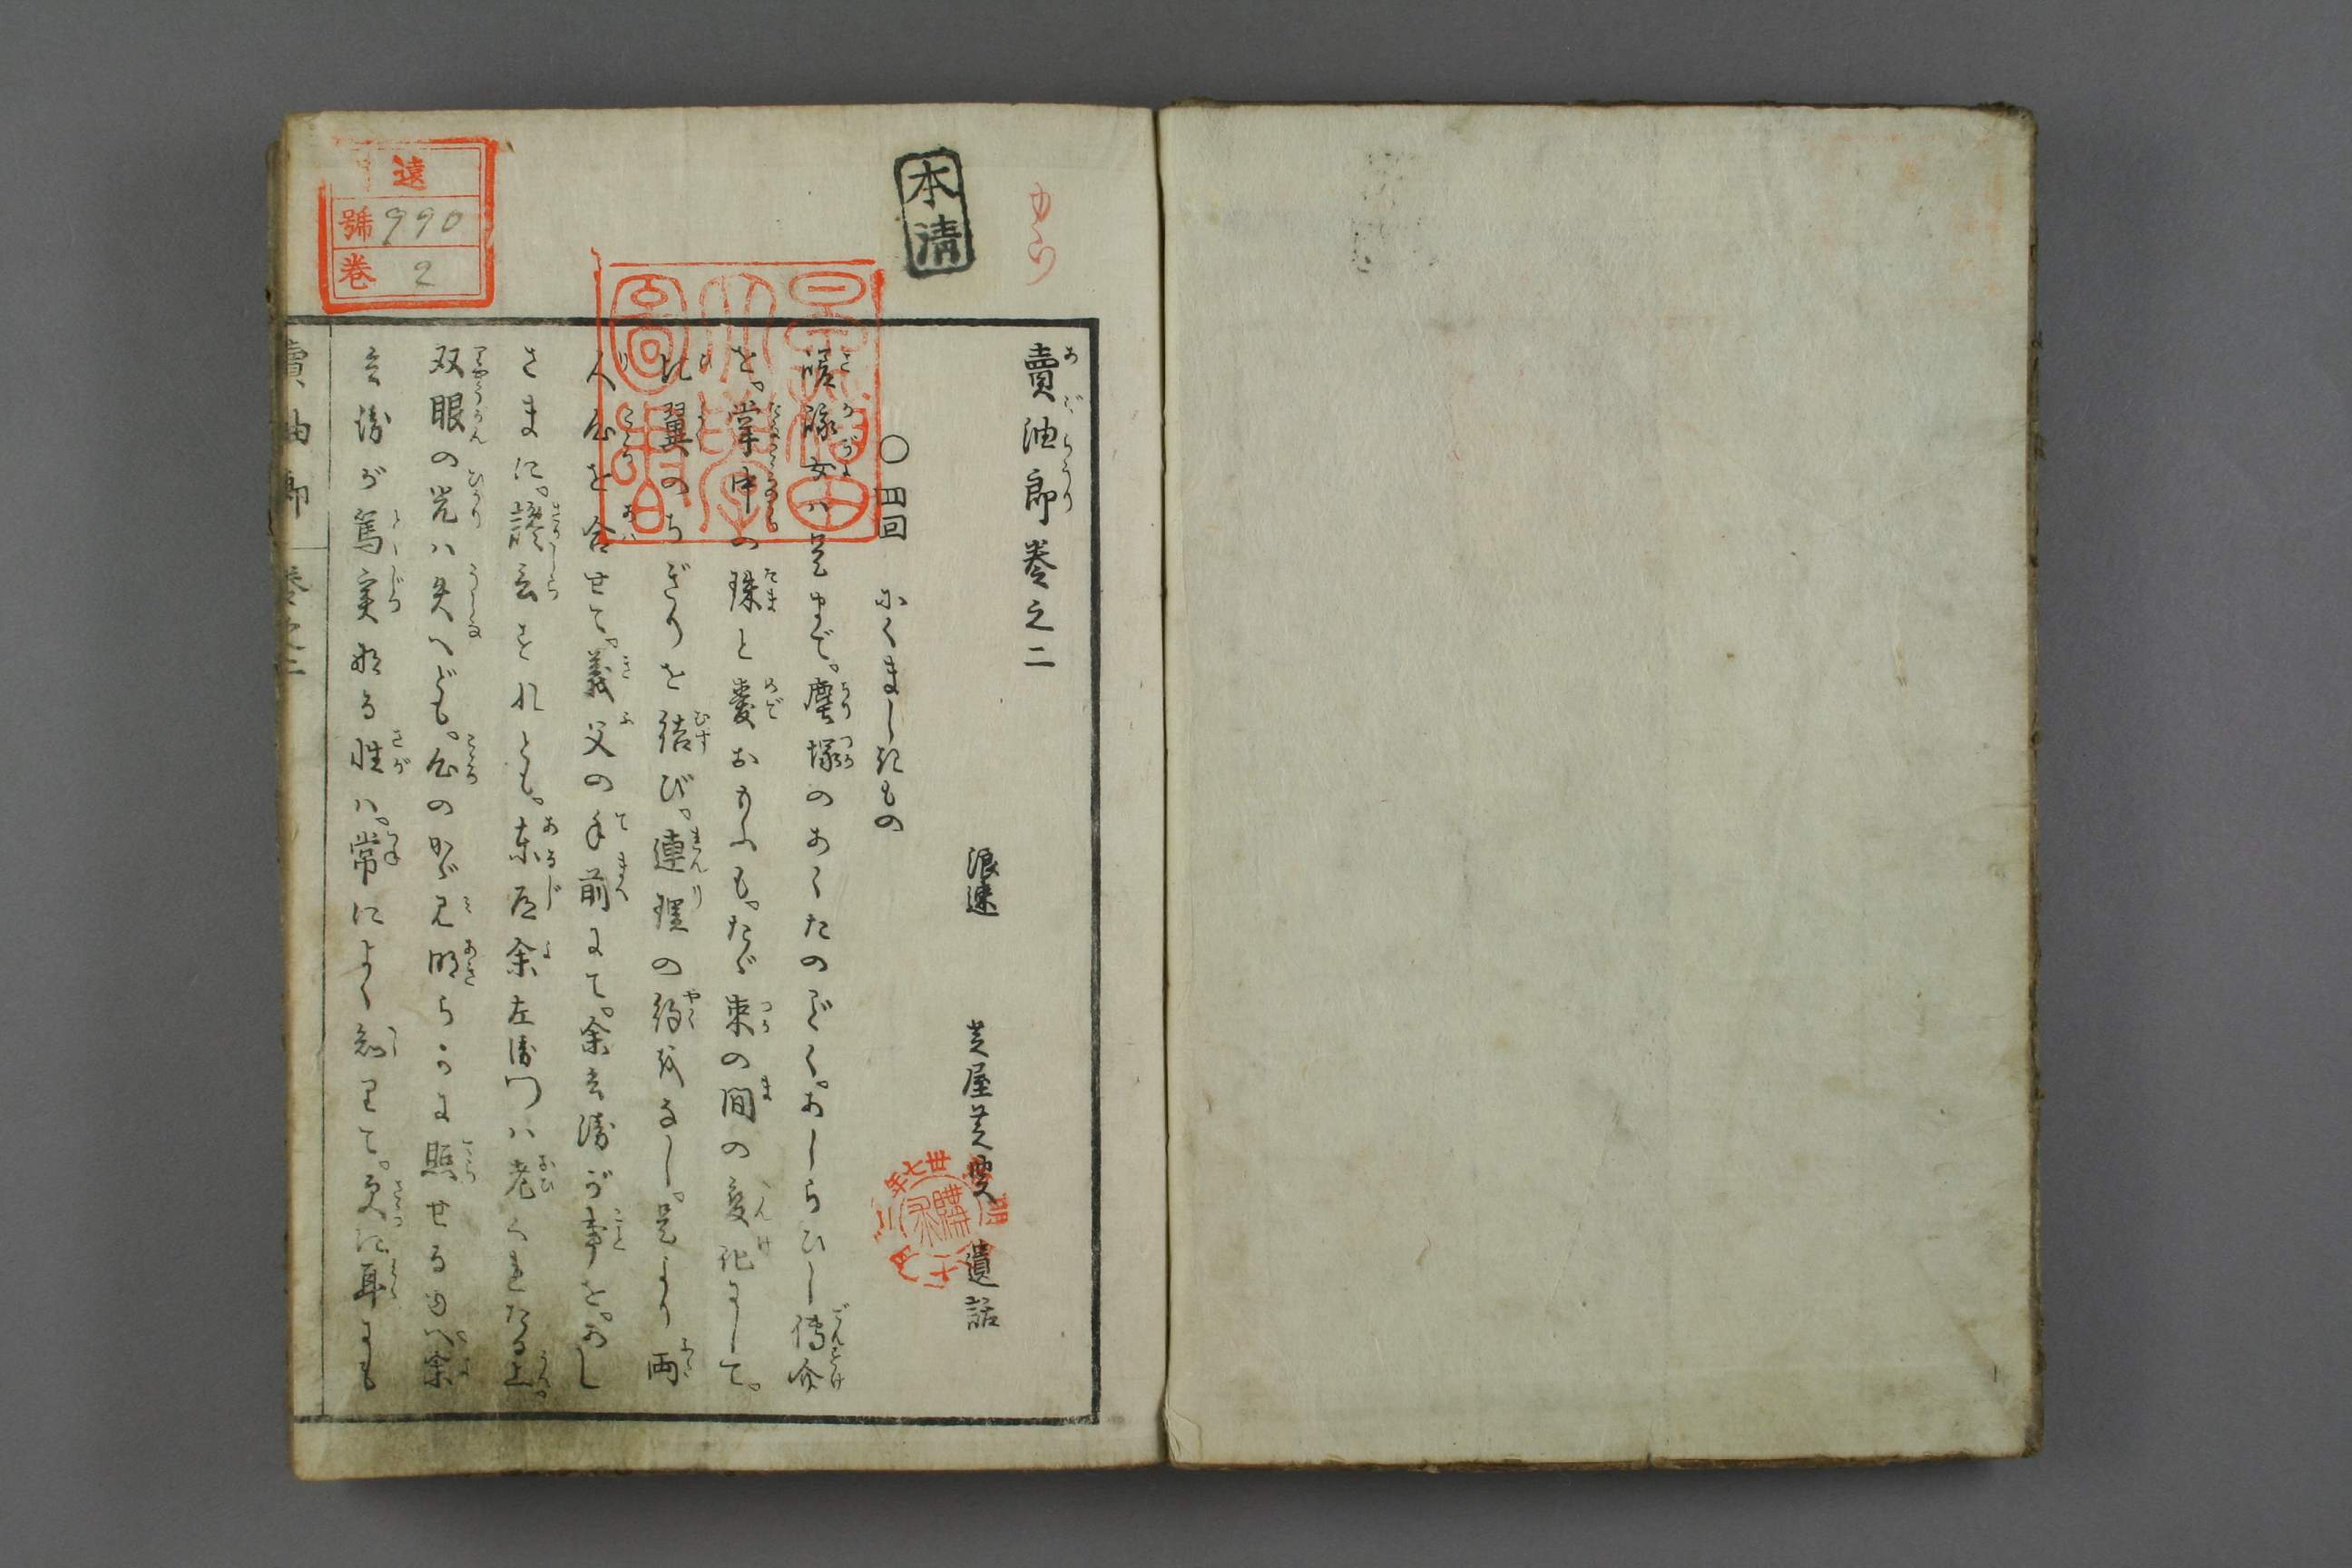 賣油郎巻之二
浪速 芝屋芝叟 遺話
○四回 にくましきもの
嵯峨女ハ是まで。塵塚のあくたのごとく。あしらひし傳介
を。掌中の珠と愛おもふも。たゞ束の間の変化にして。
比翼のちぎりを結び。連理の約をなし。是より両
人心を合せて。義父の手前にて。余吉郎が事を。あし
さまに。讒言すれとも。東原余左衛門ハ老くれたる上。
双眼の光ハ失へども。心のかゞ見明らかに照せるゆへ。余
吉郎が篤実なる性ハ。常によく知りて。更に耳にも
賣油郎 巻之二
本清
遠
號 990
巻 2
早稲田大學圖書